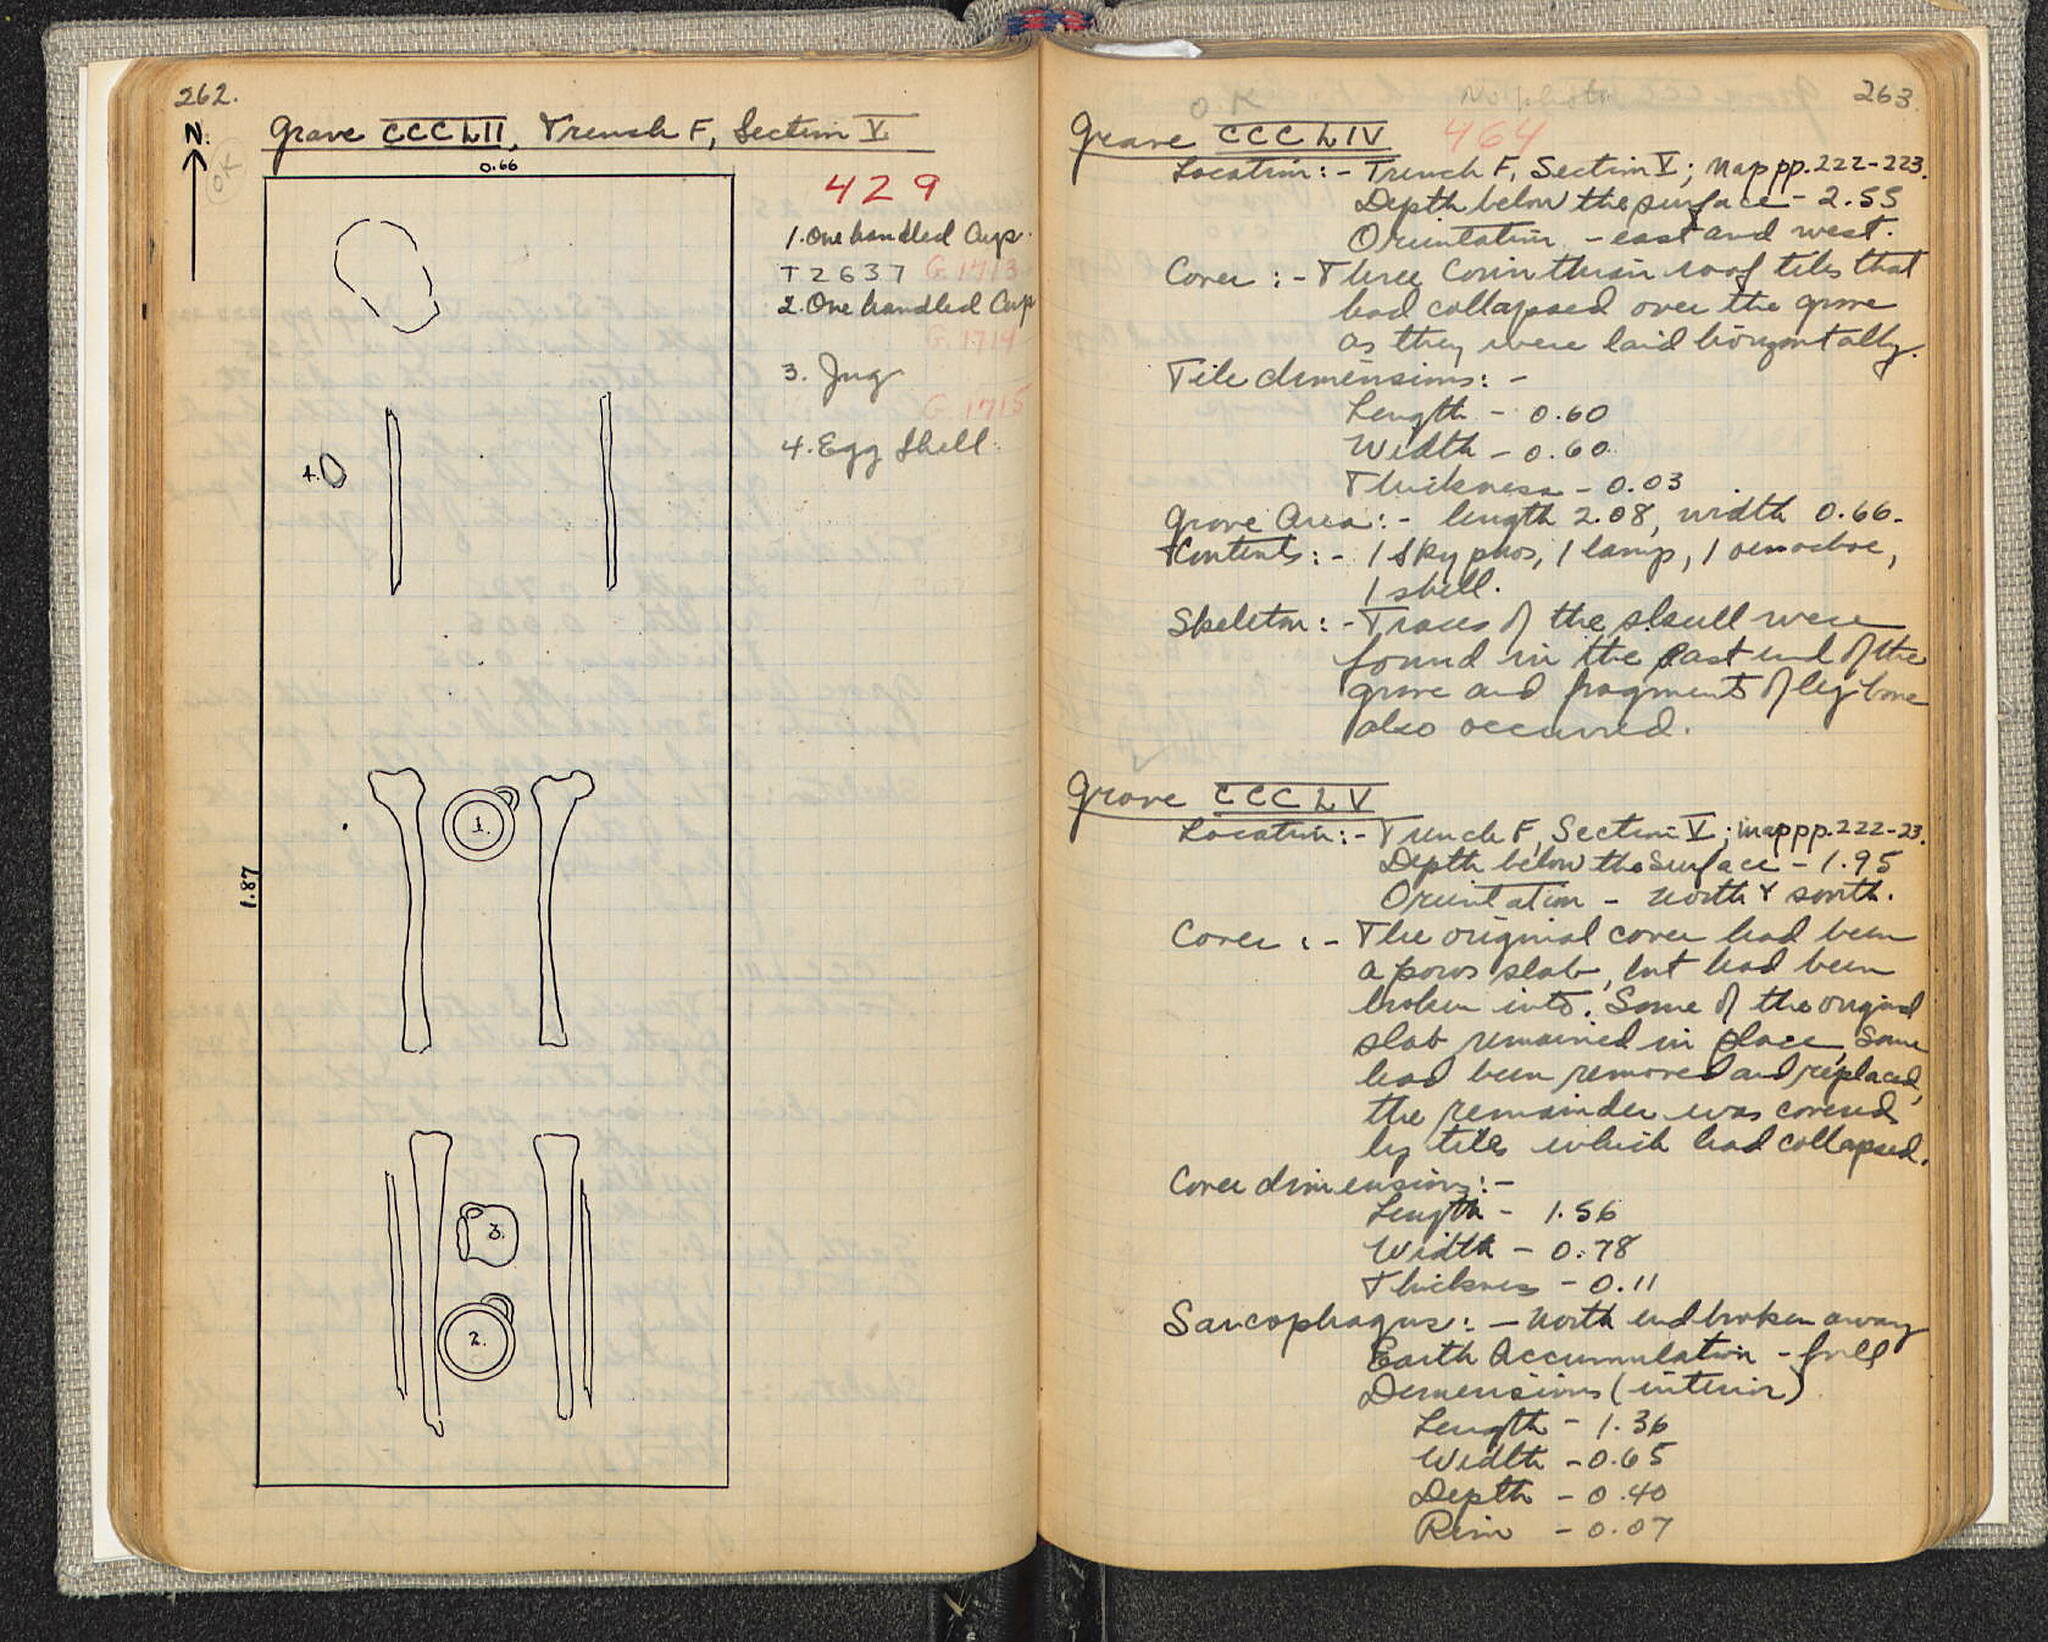 262.
N.
OK
Grave CCCLII, Trench F, Section V.
0.66
429
1. One handled Cup.
T2637 G. 1713
2. One handled Cup
G. 1714
3. Jug
G. 1715
4. Egg Shell.
4.
1.
1.87
3.
2.
263
O.K
No photo
Grave CCCLIV 464
Location:- Trench F, Section V; Map pp. 222-223.
Depth below the surface - 2.55
Orientation - east and west.
Cover:- Three Corinthian roof tiles that
had collapsed over the grave
as they were laid horizontally.
Tile dimensions:-
Length - 0.60
Width - 0.60
Thickness - 0.03
Grave Area:- length 2.08, width 0.66.
Contents:- 1 Skyphos, 1 lamp, 1 oenochoe,
1 shell.
Skeleton:- Traces of the skull were
found in the east end of the
grave and fragments of leg bone
also occurred.
Grave CCCLV
Location:- Trench F, Section V; Map pp. 222-23.
Depth below the surface - 1.95
Orientation - north & south.
Cover:- The original cover had been
a poros slab, but had been
broken into. Some of the original
slab remained in place, some
had been removed and replaced,
the remainder was covered
by tiles which had collapsed.
Cover dimensions:-
Length - 1.56
Width - 0.78
Thickness - 0.11
Sarcophagus:- North end broken away
Earth Accumulation - full
Dimensions (interior)
Length - 1.36
Width - 0.65
Depth - 0.40
Rim - 0.07